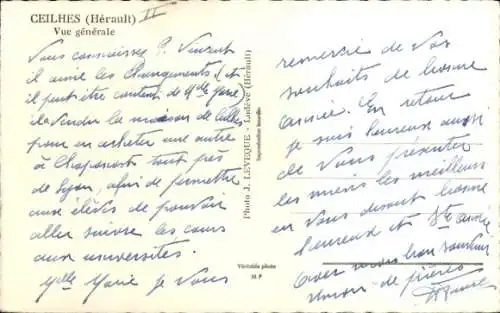 CEILHES (Hérault) II
Vue générale
Vous connaissez P. Vincent
il aime les changements (et
il peut être content, de Melle Marie)
il a vendu la maison de Ceilhes
pour en acheter une autre
à Chaponost tout près
de Lyon, afin de permettre
aux élèves de pouvoir
aller suivre les cours
aux universités.
Melle Marie je vous
Photo J. LEVEQUE - Lodève (Hérault)
Reproduction interdite
Véritable photo
M P
remercie de vos
souhaits de bonne
année. En retour
je suis heureuse aussi
de vous présenter
les miens les meilleurs
en vous disant bonne
heureuse et Ste année
avec mon bon souvenir
union de prières